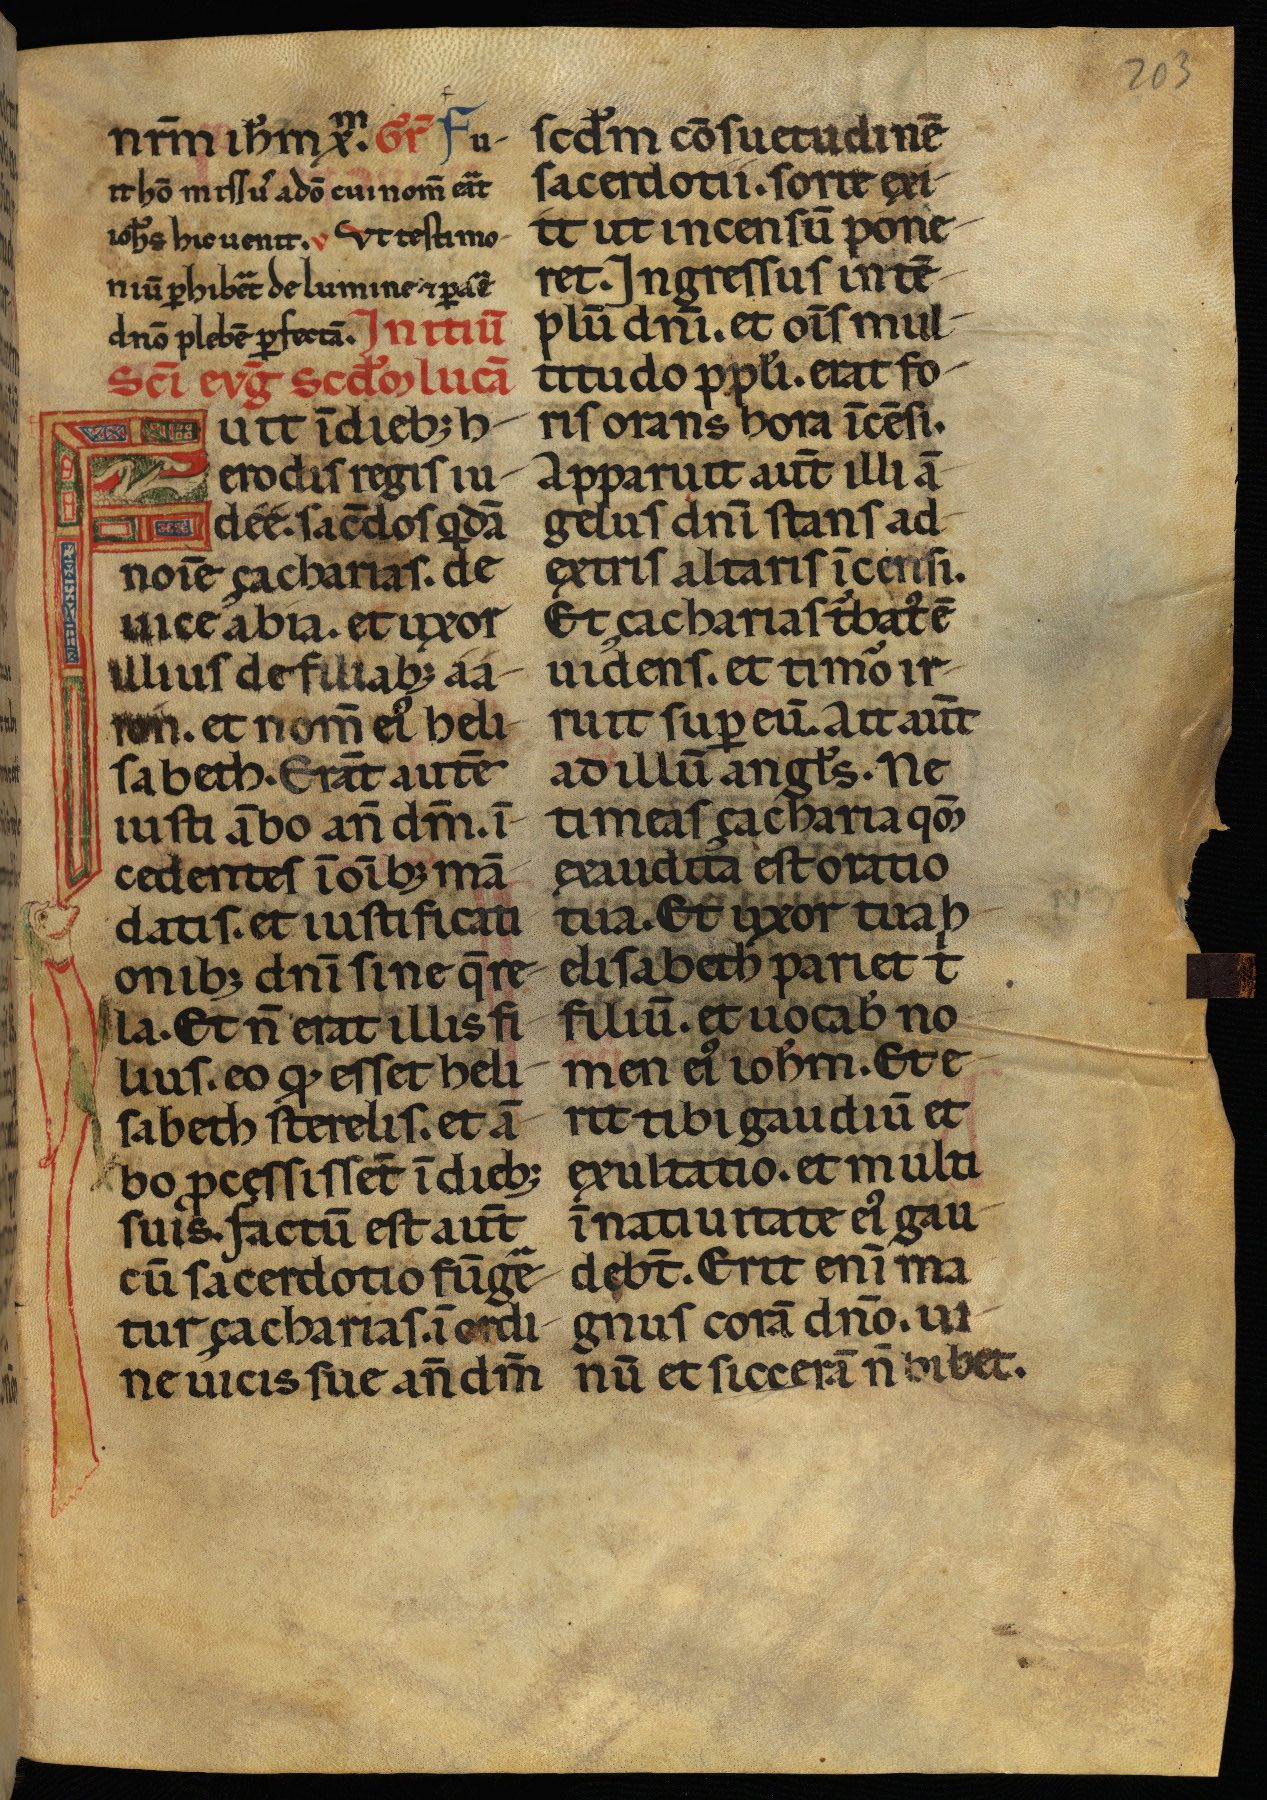 203
nr̄m ih̄m xm̄. Gr̄ Fu-
it hō missuˢ a dō cui nom̄ eāt
ioh̄s hic uenit. v Vt testimo-
niū ꝑhibēt de lumine ⁊ ꝑarē
dnō plebē ꝑfectā. Initiū
Sc̄i evḡ Scd̄m lucā
Fuit ī dieb; h-
erodis regis iu-
dee. sac̄dos qdā
noīe çacharias. de
uice abia. et uxor
illius de filiab; aa-
ron. et nom̄ eiꝰ heli-
sabeth. Erāt autē
iusti ābo an̄ dm̄. ī
cedentes ī oīb; mā
datis. et iustificati
onib; dnī sine q̄re-
la. Et n̄ erat illis fi
lius. eo qꝫ esset heli-
sabeth sterelis. et ā
bo ꝓcessissēt ī dieb;
suis. factū est aut̄
cū sacerdotio fūgē-
tur çacharias. ī ordi-
ne uicis sue an̄ dm̄
scd̄m cōsuetudinē
sacerdotii. sorte exi-
it ut incensū pone-
ret. Ingressus in tē-
plū dnī. et oīs mul-
titudo ppl̄i. erat fo-
ris orans hora īcēsi.
Apparuit aut̄ illi ā-
gelus dnī stans ad
extris altaris īcensi.
Et çacharias t̄batꝰ ē
uidens. et timor̄ ir-
ruit suꝑ eū. Ait aut̄
ad illū angl̄s. Ne
timeas çacharia qm̄
exaudita est oratio
tua. Et uxor tua h-
elisabeth pariet t̄
filiū. et uocab̄ no-
men eiꝰ ioh̄m. Et e-
rit tibi gaudiū et
exultatio. et multi
ī natiuitate eiꝰ gau-
debt̄. Erit enī ma
gnus corā dnō. ui-
nū et siccerā n̄ bibet.